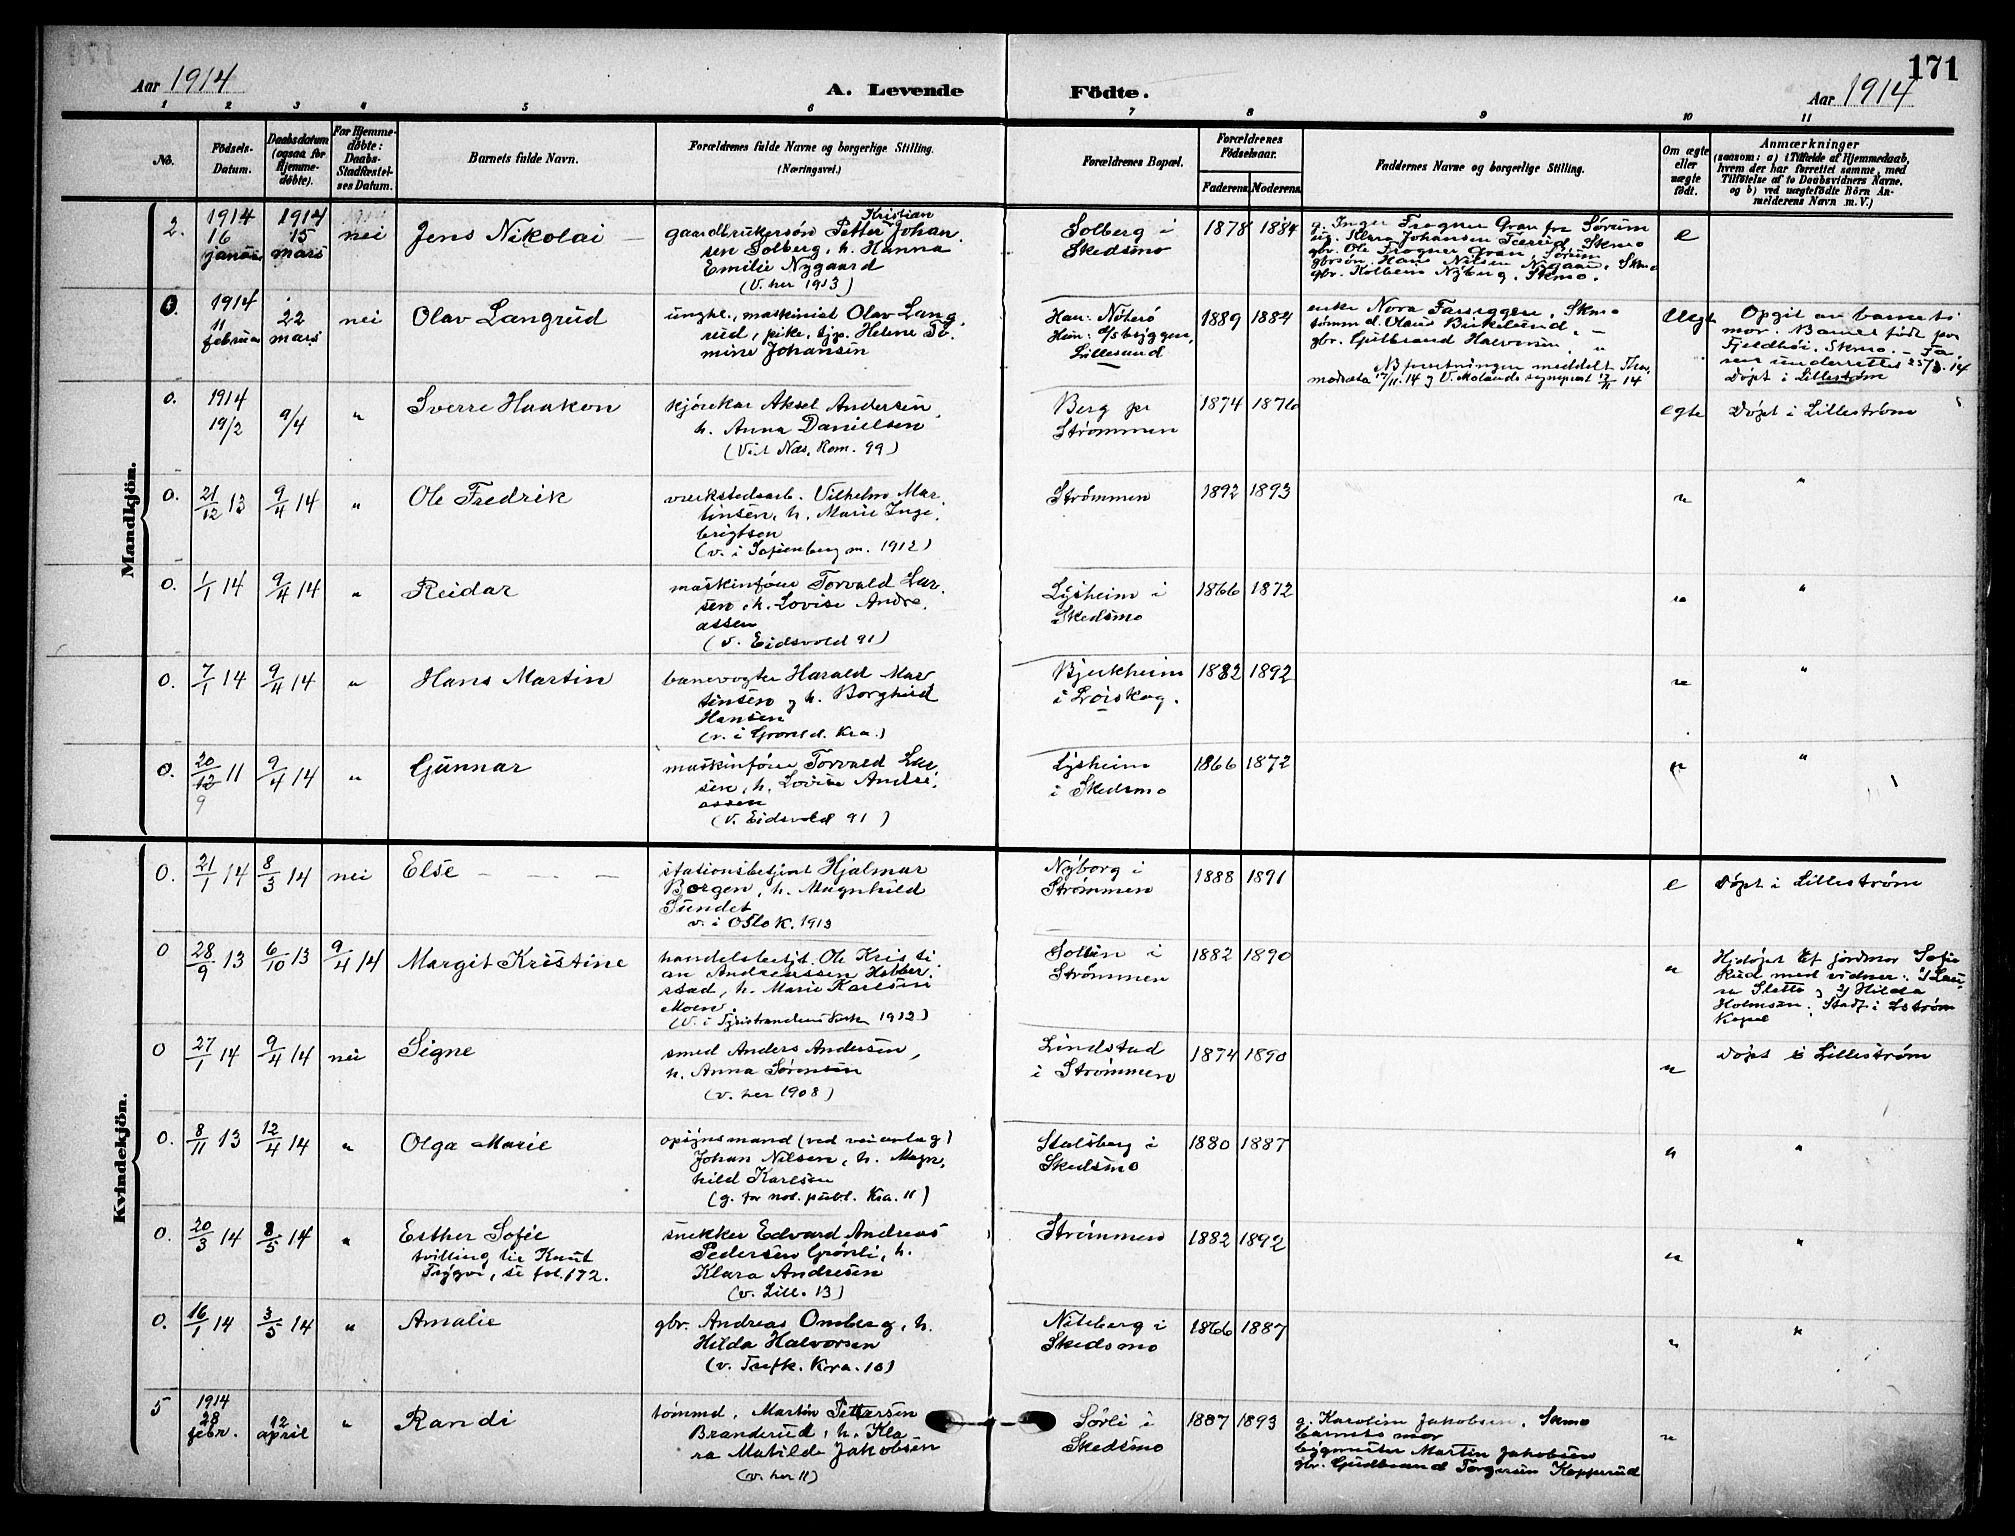 171
Aar 1914
A. Levende Födte.
Aar 1914
1 2 3 4 5 6 7 8 9 10 11
No.
Födsels-
Datum.
Daabsdatum
(ogsaa for
Hjemme-
döbte).
For Hjemme-
döbte:
Daabs-
Stadfæstel-
ses Datum.
Barnets fulde Navn.
Forældrenes fulde Navne og borgerlige Stilling.
(Næringsvei.)
Forældrenes Bopæl.
Forældrenes
Födselsaar.
Faderens. Moderens.
Faddernes Navne og borgerlige Stilling.
Om ægte
eller
uægte
födt.
Anmærkninger
(saasom: a) i Tilfælde af Hjemmedaab,
hvem der har forrettet samme, med
Tilföielse af to Daabsvidners Navne,
og b) ved uægtefödte Börn An-
melderens Navn m. V.)
Mandkjön.
2. 1914 16 januar
1914 15 mars
nei
Jens Nikolai
Kristian
gaardbrukersøn Petter Johan-
sen Solberg, h. Hanna
Emilie Nygaard
(V. her 1913)
Solberg i
Skedsmo
1878 1884
g. Inger Frogner Gran fra Sørum
ug. Klara Johansen Tærud, Skmo
gbr. Ole Frogner Gran, Sørum
gbrsøn. Hans Nilsen Nygaar, Skmo
gbr. Kolbein Nyberg, Skmo.
e
0. 1914 11 februar
22 mars
nei
Olav Langrud
ungk., maskinist Olav Lang-
rud, pike, tjp. Helene To-
mine Johansen
Han: Nøterø
Hun:
Lillesand
1889 1884
enke Nora Fasseggen, Skmo
tømmd. Olaus Birkelund, "
gbr. Gulbrand Halvorsen, "
uegt
Opgit av barnets
mor. Barnet født paa
Fjeldhøi, Skmo. - Fa-
ren underrettes 25/3. 14
Døpt i Lillestrøm
0. 1914 19/2
9/4
"
Sverre Haakon
kjørekar Aksel Andersen,
h. Anna Danielsen
(Viet Næs, Rom. 99)
Berg pr
Strømmen
1874 1876
egte
Døpt i Lillestrøm
0. 21/12 13
9/4 14
"
Ole Fredrik
verkstedsarb. Vilhelm Mar-
tinsen, h. Marie Inge-
brigtsen
(v. i Sofienberg m. 1912)
Strømmen
1892 1893
"
"
0. 1/1 14
9/4 14
"
Reidar
maskinfører Torvald Lar-
sen, h. Lovise Andre-
assen
(v. Eidsvold 91)
Lysheim i
Skedsmo
1866 1872
"
"
0. 7/1 14
9/4 14
"
Hans Martin
banevogter Harald Mar-
tinsen og h. Borghild
Hansen
(v. i Grønld. Kra.)
Bjerkheim
i Lørskog.
1882 1892
"
"
0. 20/12 11
9
9/4 14
"
Gunnar
maskinfører Torvald Lar-
sen, h. Lovise Andre-
assen
(V. Eidsvold 91)
Lysheim
i Skedsmo
1866 1872
"
"
Kvindekjön.
0. 21/1 14
8/3 14
nei
Else
stationsbetjent Hjalmar
Borgen, h. Magnhild
Sundet
v. i Oslo k. 1913
Nyborg i
Strømmen
1888 1891
e
Døpt i Lillestrøm
0 28/9 13
6/10 13
9/4 14
Margit Kristine
handelsbetjt. Ole Kristi-
an Andreassen Hobber-
stad, h. Marie Karlsen
Moen.
(V. i Tyristrandens kirke 1912)
Solbin i
Strømmen
1882 1890
"
Hjdøpt af jordmor Sofie
Rud med vidner: 1) Lau-
ra Sletto og 2) Hilda
Holmsen. Stadf. i Lstrøm
Kapel
0 27/1 14
9/4 14
nei
Signe
smed Anders Andersen,
h. Anna Sørensen
(v. her 1908)
Lindstad
i Strømmen
1874 1890
"
Døpt i Lillestrøm
0. 8/11 13
12/4 14
"
Olga Marie
opsynsmand (ved veianlæg)
Johan Nilsen, h. Magn-
hild Karlsen
(g. for not. publ. Kra. 11)
Stalsberg i
Skedsmo
1880 1887
"
"
0. 20/3 14
8/5 14
"
Esther Sofie
tvilling til Knut
Trygve, se fol. 172.
snekker Edvard Andreas
Pedersen Grønli, h.
Klara Andresen
(v. Lill. 13)
Strømmen
1882 1892
"
"
0. 16/1 14
3/5 14
"
Amalie
gbr. Andreas Omberg, h.
Hilda Halvorsen
(v. Trefk. Kra. 10)
Niteberg i
Skedsmo
1866 1887
"
"
5 1914 28 febr.
12 april
"
Randi
tømmd. Martin Pettersen
Branderud, h. Kla-
ra Matilde Jakobsen
(v. her 11)
Sørli i
Skedsmo
1887 1893
g. Karoline Jakobsen, Skmo
barnets mor
bygmester Martin Jakobsen
gbr. Gudbrand Torgersen Kopperud
"